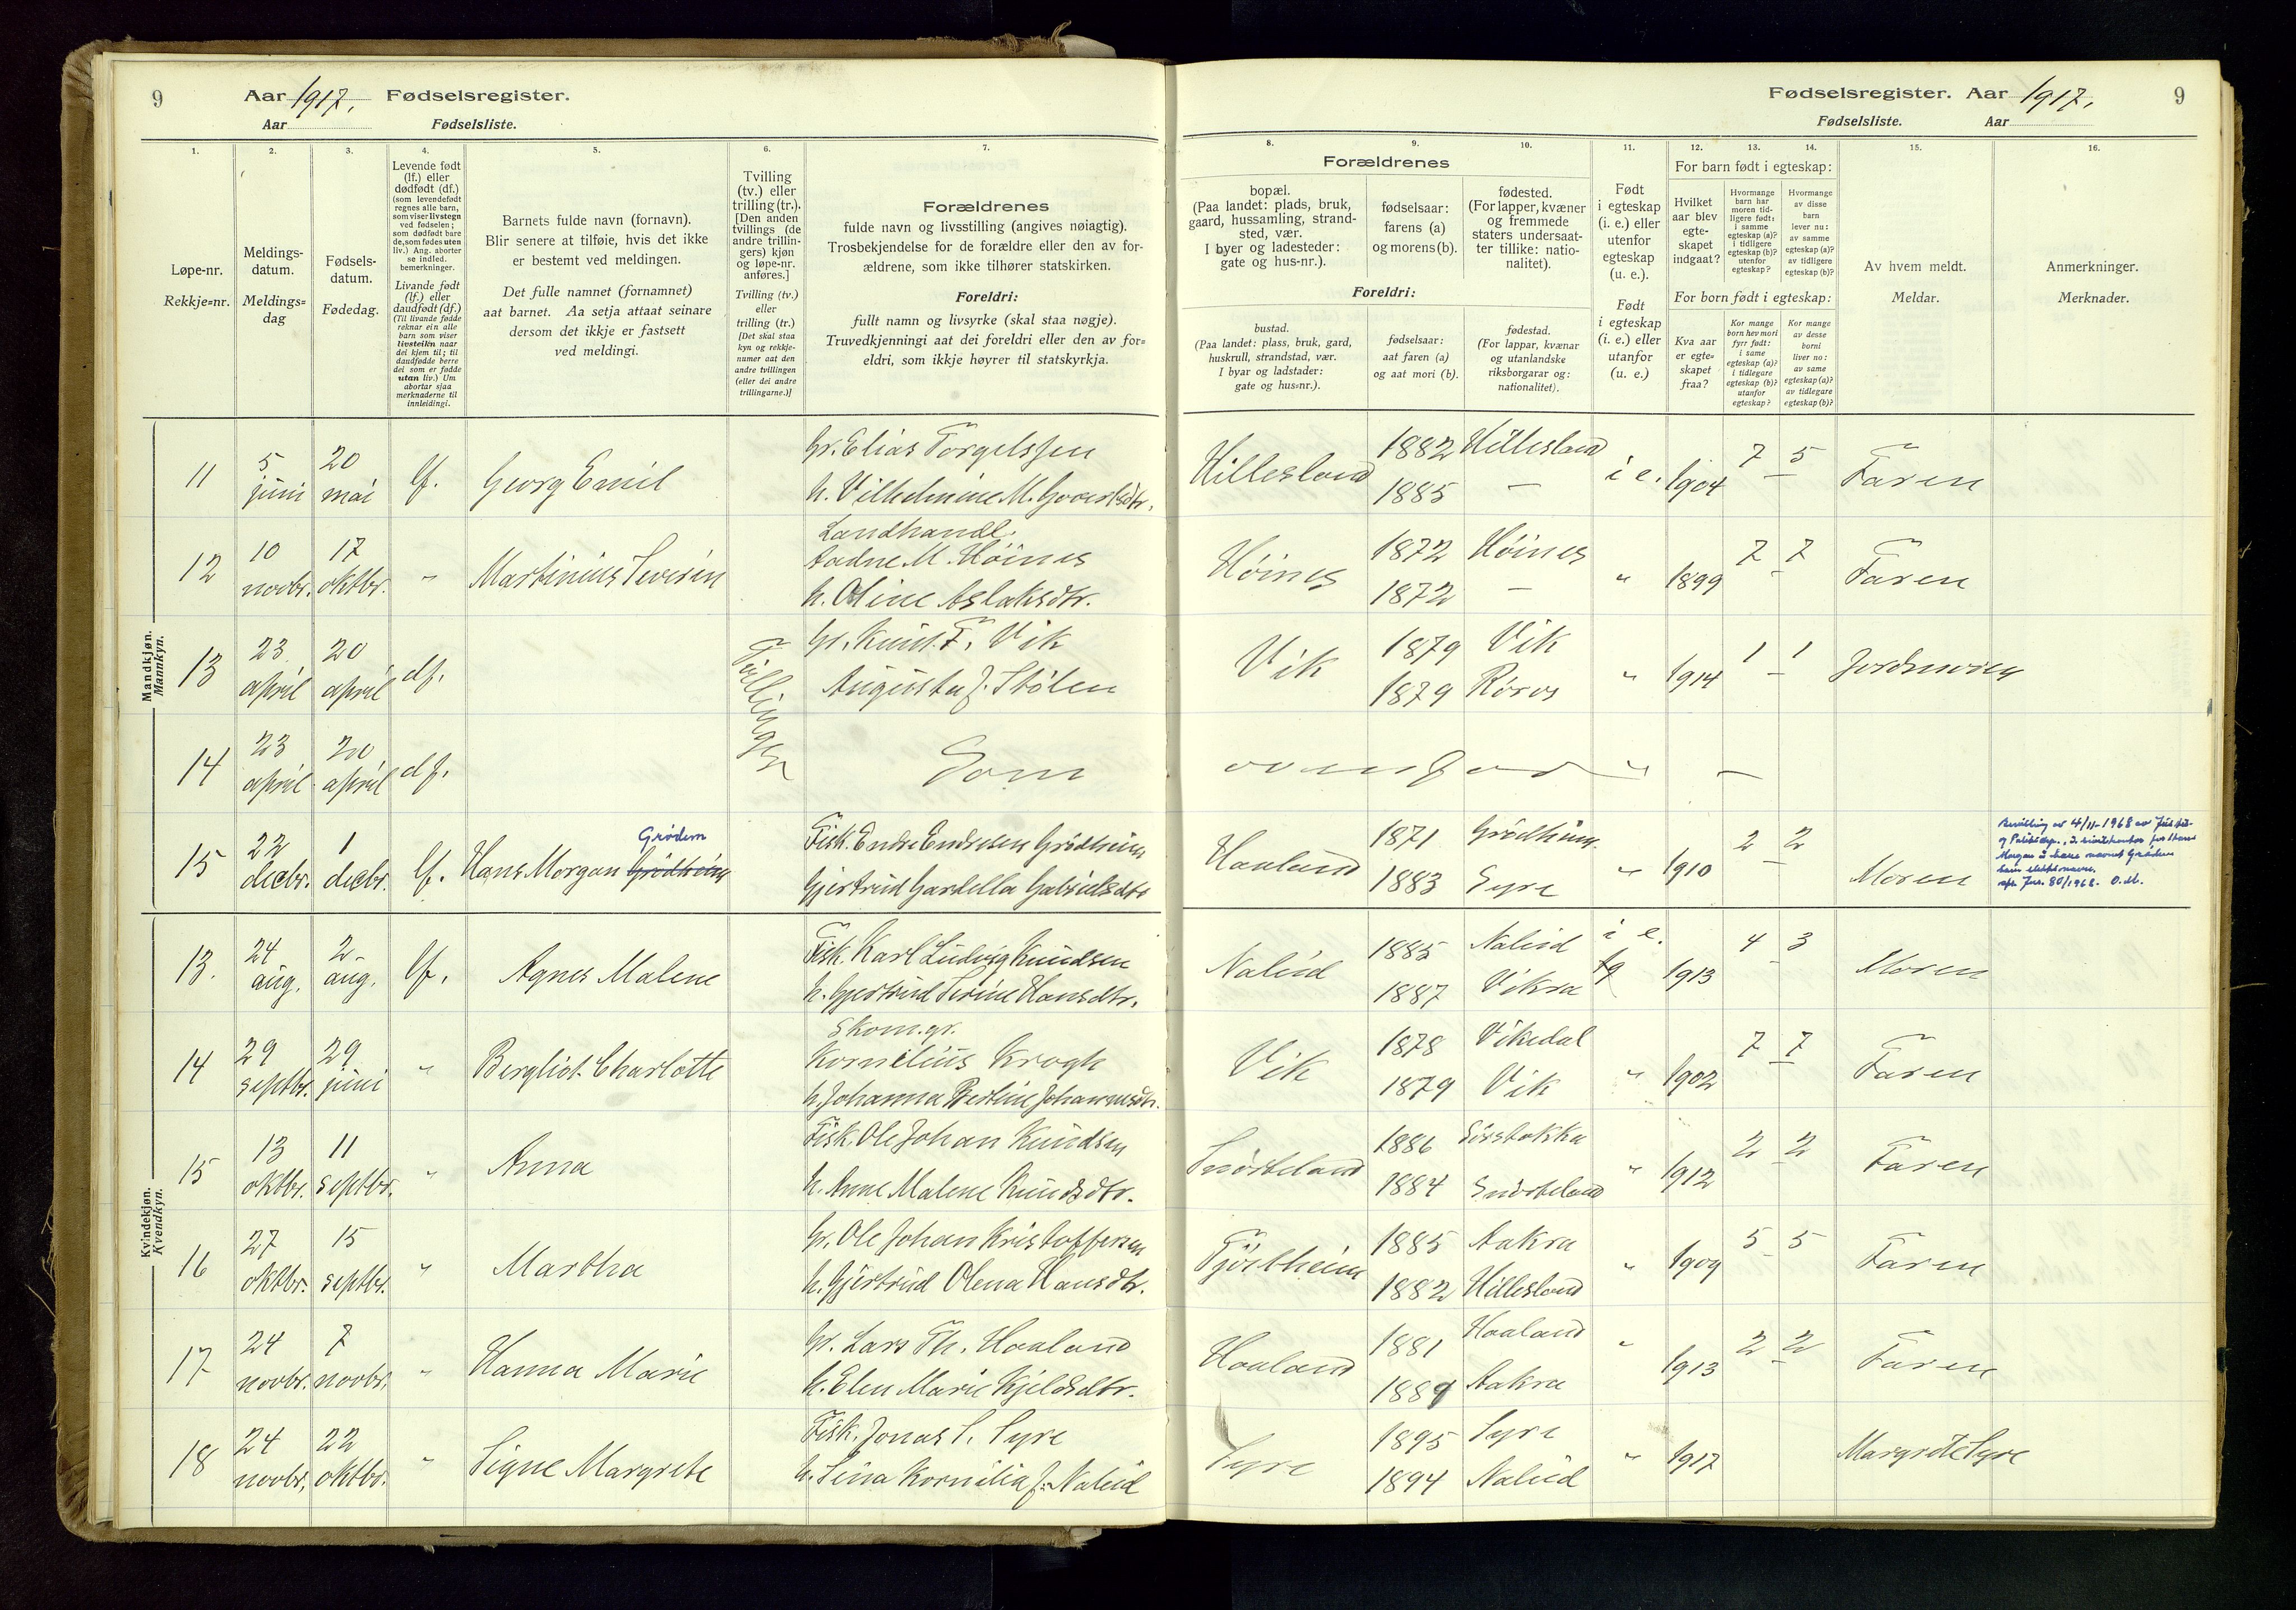 9
Aar 1917. Fødselsregister.
Aar Fødselsliste.
Fødselsregister. Aar 1917.
9
Fødselsliste. Aar
1.
Løpe-nr.
Rekkje=nr.
2.
Meldings-
datum.
Meldings=
dag
3.
Fødsels-
datum.
Fødedag.
4.
Levende født
(lf.) eller
dødfødt (df.)
(som levendefødt
regnes alle barn,
som viser livstegn
ved fødselen;
som dødfødt bare
de, som fødes uten
liv.) Ang. aborter
se indled.
bemerkninger.
Livande født
(lf.) eller
daudfødt (df.)
(Til livande fødde
reknar ein alle
barn som viser
livsteikn naar
dei kjem til; til
daudfødde berre
dei som er fødde
utan liv.) Um
abortar sjaa
merknaderne til
innleidingi.
5.
Barnets fulde navn (fornavn).
Blir senere at tilføie, hvis det ikke
er bestemt ved meldingen.
Det fulle namnet (fornamnet)
aat barnet. Aa setja attaat seinare
dersom det ikkje er fastsett
ved meldingi.
6.
Tvilling
(tv.) eller
trilling (tr.).
[Den anden
tvillings (de
andre trillin-
gers) kjøn
og løpe-nr.
anføres.]
Tvilling (tv.)
eller
trilling (tr.)
[Det skal staa
kyn og rekkje-
numer aat den
andre tvillingen
(eller dei andre
trillingarne.)]
7.
Forældrenes
fulde navn og livsstilling (angives nøiagtig).
Trosbekjendelse for de forældre eller den av for-
ældrene, som ikke tilhører statskirken.
Foreldri:
fullt namn og livsyrke (skal staa nøgje).
Truvedkjenningi aat dei foreldri eller den av for=
eldri, som ikkje høyrer til statskyrkja.
8.
Forældrenes
bopæl.
(Paa landet: plads, bruk,
gaard, hussamling, strand-
sted, vær.
I byer og ladesteder:
gate og hus-nr.).
Foreldri:
bustad.
(Paa landet: plass, bruk, gard,
huskrull, strandstad, vær.
I byar og ladstader:
gate og hus=nr.).
9.
fødselsaar:
farens (a)
og morens (b).
fødselsaar:
aat faren (a)
og aat mori (b).
10.
fødested.
(For lapper, kvæner
og fremmede
staters undersaat-
ter tillike: natio-
nalitet).
fødestad.
(For lappar, kvænar
og utanlandske
riksborgarar og:
nationalitet).
11.
Født
i egteskap
(i. e.) eller
utenfor
egteskap
(u. e.).
Født
i egteskap
(i. e.) eller
utanfor
(u. e.)
12. 13. 14.
For barn født i egteskap:
Hvilket
aar blev
egte-
skapet
indgaat?
Hvormange
barn har
moren tid-
ligere født:
i samme
egteskap (a)?
i tidligere
egteskap (b)?
utenfor
egteskap?
Hvormange
av disse
barn
lever nu:
av samme
egteskap (a)?
av tidligere
egteskap (b)?
For born født i egteskap:
Kva aar
er egte=
skapet
fraa?
Kor mange
born hev mori
fyrr født:
i same
egteskap (a)?
i tidlegare
egteskap (b)?
utanfor
egteskap?
Kor mange
av desse
borni
liver no:
av same
egteskap (a)?
av tidlegare
egteskap (b)?
15.
Av hvem meldt.
Meldar.
16.
Anmerkninger.
Merknader.
Mandkjøn.
Mannkyn.
11 5 juni 20 mai lf. Georg Emil
Gr. Elias Torgelssen
h. Vilhelmine M. Govertsdtr.
Hillesland 1882 Hillesland i e. 1904 7 - 5 Faren
1885 —
12 10 novbr. 17 oktbr. " Martinius Severin
Landhandl.
Aadne M. Høines
h. Oline Aslaksdtr.
Høines 1872 Høines " 1899 7 - 7 Faren
1872 —
13 23 april 20 april df.
Tvillinger
Gr. Knut T. Vik
Augusta f. Stølen
Vik 1879 Vik " 1914 1 - 1 Jordmoren
1879 Røros
14 23 april 20 april df.
Som ovenfor " —
15 22 decbr. 1 decbr. lf. Hans Morgan Grødheim
Grødem
Fisk. Endre Endresen Grødheim
Gjertrud Gardella Gabrielsdtr
Haaland 1871 Grødheim " 1910 2 - 2 Moren
1883 Syre
Bevilling av 4/11-1968 av Justis-
og Politidep.
Morgan å bære navnet Grødem
som slektsnavn.
Jnr. 80/1968. O.M.
Kvindekjøn.
Kvendkyn.
13. 24 aug. 2 aug. lf. Agnes Malene
Fisk. Karl Ludvig Knudsen
h. Gjertrud Serine Hansdtr.
Nalud 1885 Nalud i e. 1913 4 - 3 Moren
1887 Vikra
14 29 septbr. 29 juni " Bergliot Charlotte
Skom. gr.
Kornelius Krogh
h. Johanna Bertine Johannesdtr.
Vik 1878 Vikedal " 1902 7 - 7 Faren
1879 Vik
15 13 oktbr. 11 septbr. " Anna
Fisk. Ole Johan Knudsen
h. Anne Malene Knudsdtr.
Snørteland 1886 Sørstokke " 1912 2 - 2 Faren
1884 Snørteland
16 27 oktbr. 15 septbr. " Martha
Gr. Ole Johan Kristoffersen
h. Gjertrud Olena Hansdtr.
Tjøstheim 1885 Aakra " 1909 5 - 5 Faren
1882 Hillesland
17 24 novbr. 7 novbr. " Hanna Marie
Gr. Lars Th. Haaland
h. Elen Marie Kjeldsdtr.
Haaland 1881 Haaland " 1913 2 - 2 Faren
1889 Aakra
18 24 novbr. 22 oktbr. " Signe Margrete
Fisk. Jonas S. Syre
h. Sina Kornelia f. Nalud
Syre 1895 Syre " 1917 Margrete Syre
1894 Nalud